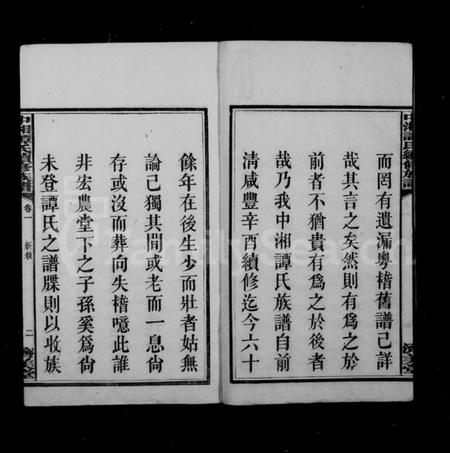 中湘譚氏續修族譜
而罔有遺漏粵稽舊譜已詳
哉其言之矣然則有爲之於
前者不猶貴有爲之於後者
哉乃我中湘譚氏族譜自前
清咸豐辛酉續修迄今六十
餘年在後生少而壯者姑無
論已獨其間或老而一息尙
存或沒而葬向失稽噫此誰
非宏農堂下之子孫奚爲尙
未登譚氏之譜牒則以收族
中湘譚氏續修族譜
卷一
新敘
二
FamilySearch